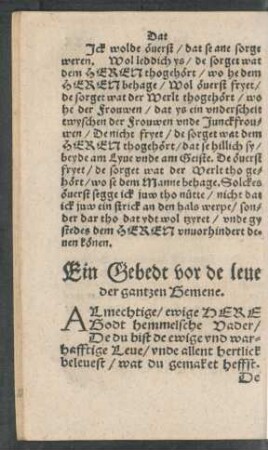 Dat
Jck wolde öuerst / dat se ane sorge
weren. Wol leddich ys / de sorget wat
dem HEREN thogehört / wo he dem
HEREN behage / Wol öuerst fryet /
de sorget wat der Werlt thogehört / wo
he der Frouwen / dat ys ein vnderscheit
twyschen der Frouwen vnde Junckfrou-
wen / De nicht fryet / de sorget wat dem
HEREN thogehört / dat se hillich sy /
beyde am Lyue vnde am Geiste. De öuerst
fryet / de sorget wat der Werlt tho ge-
hört / wo se dem Manne behage. Solckes
öuerst segge ick juw tho nütte / nicht dat
ick juw ein strick an den hals werpe / son-
der dar tho dat ydt wol tzyret / vnde gy
stedes dem HEREN vnuorhindert de-
nen könen.
Ein Gebedt vor de leue
der gantzen Gemene.
ALmechtige / ewige HERE
Godt hemmelsche Vader /
De du bist de ewige vnd war-
hafftige Leue / vnde allent hertlick
beleuest / wat du gemaket heffst.
De